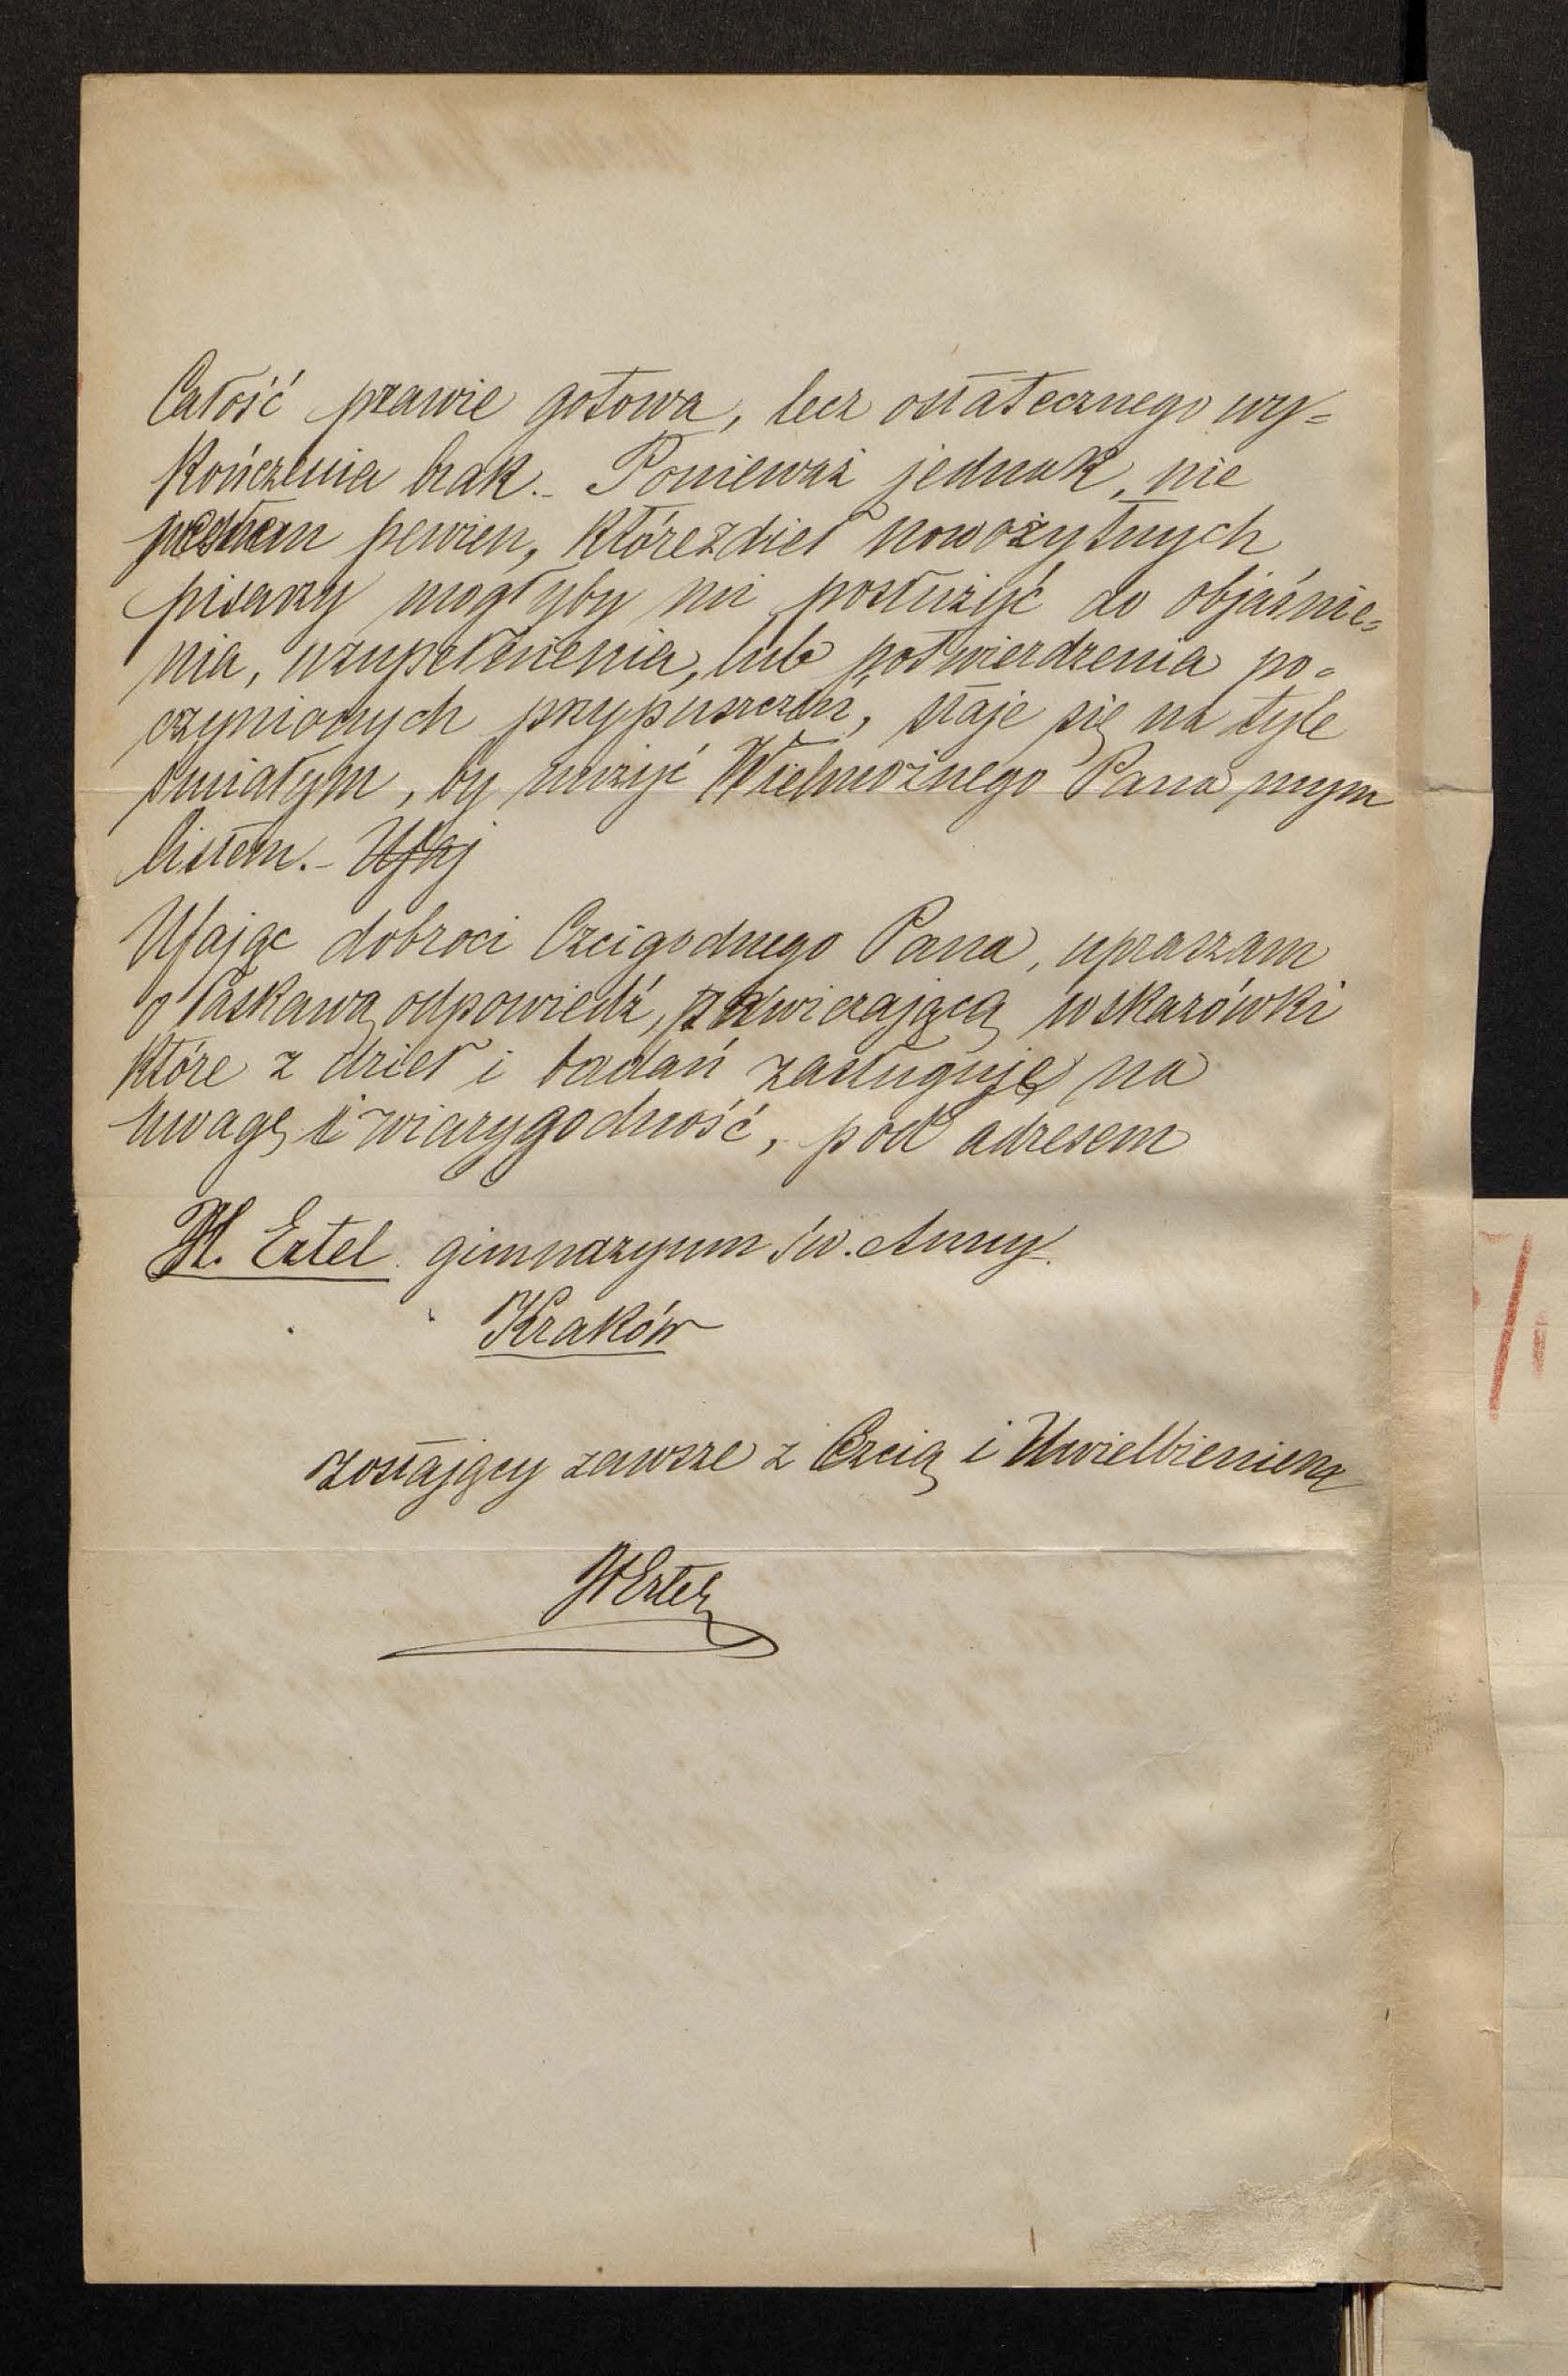 Całość prawie gotowa, lecz ostatecznego wy=
kończenia brak.- Ponieważ jednak, nie
jestem pewien, któreż dzieł nowożytnych
pisarzy mogłyby mi posłużyć do objaśnie=
nia, uzupełnienia, lub potwierdzenia po=
czynionych przypuszczeń, staje się na tyle
śmiałym, by nużyć Wielmożnego Pana mym
listem.- Ufaj
Ufając dobroci Czcigodnego Pana, upraszam
o łaskawą odpowiedź, zawierającą wskazówki
które z dzieł i badań zasługuję na
uwagę i wiarygodność, pod adresem
H. Ertel gimnazyum św. Anny.
Kraków
zostający zawsze z Czcią i Uwielbieniem
HErtel